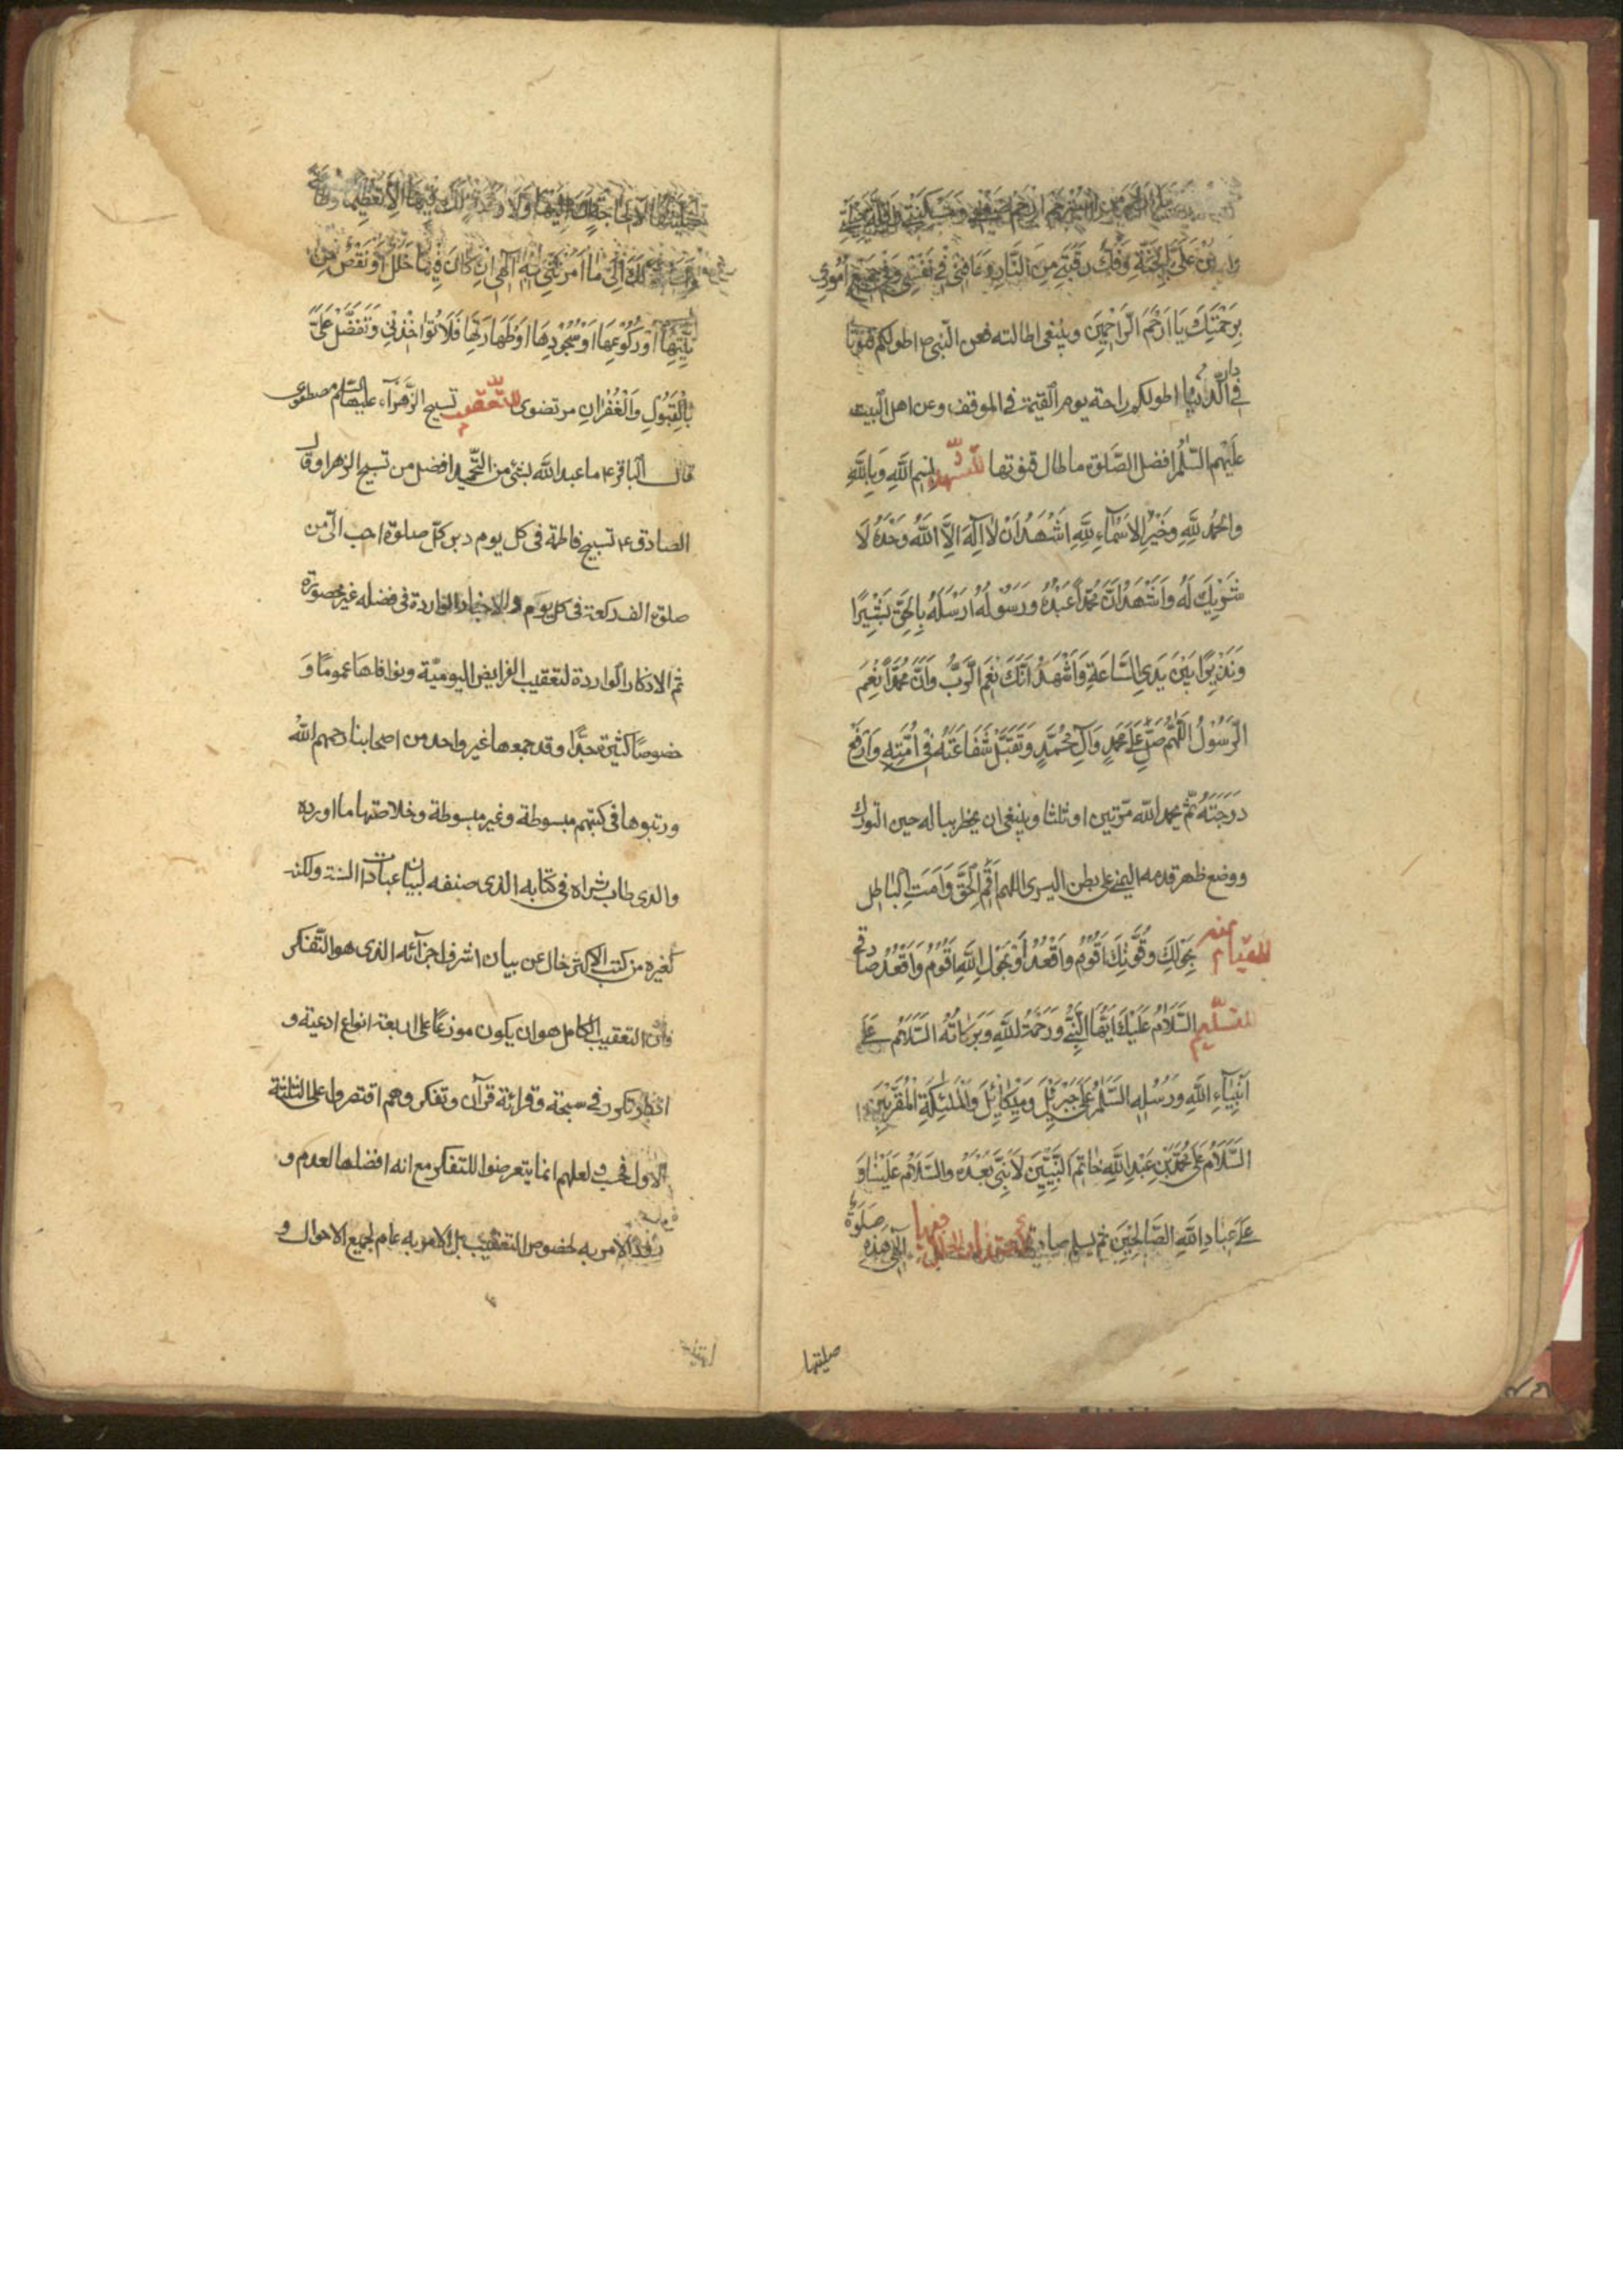 وامنن علي بالجنة وفك رقبتي من النار وعافني في نفسي وفي جميع اموري
بِرَحْمَتِكَ يَا اَرْحَمَ الرَّاحِمِينَ وينبغى اطالته فعن النبى ص اطولكم قنوتا
فى دار الدنيا اطولكم راحة يوم القيمة فى الموقف وعن اهل البيت
عليهم السلم افضل الصلوة ما طال قنوتها للتشهد بسم الله وَبِاللهِ
والحمدُ للهِ وَخَيْرُ الاَسْمَاءِ للهِ اَشْهَدُ اَنْ لا اِلَهَ اِلَّا اللهُ وَحْدَهُ لَا
شَرِيكَ لَهُ وَاَشْهَدُ اَنَّ مُحَمَّداً عَبْدُهُ وَرَسُولُهُ اَرْسَلَهُ بِالحَقِّ بَشِيرًا
وَنَذِيرًا بَيْنَ يَدَىِ السَّاعَةِ وَاَشْهَدُ اَنَّكَ نِعْمَ الرَّبُّ وَاَنَّ مُحَمَّداً نِعْمَ
الرَّسُولُ اللّهُمَّ صَلِّ عَلَى مُحَمَّدٍ وَآلِ مُحَمَّدٍ وَتَقَبَّلْ شَفَاعَتَهُ فِى اُمَّتِهِ وَارْفَعْ
دَرَجَتَهُ ثم يحمد الله مرتين او ثلثا وينبغى ان يخطر بباله حين التورك
ووضع ظهر قدمه اليمنى على بطن اليسرى اللهم اَقِمِ الْحَقَّ وَاَمِتِ الْبَاطِل
للقيام منه بِحَوْلِكَ وَقُوَّتِكَ اَقُومُ وَاَقْعُدُ اَوْ بِحَوْلِ اللهِ اَقُومُ وَاَقْعُدُ صادقى
للتسليم السَّلَامُ عَلَيْكَ اَيُّهَا النَّبِىُّ وَرَحْمَةُ اللهِ وَبَرَكَاتُهُ السَّلَامُ عَلَى
اَنْبِيَآءِ اللهِ وَرُسُلِهِ السَّلَمُ عَلَى جَبْرَئِيلَ وَمِيكَائِيلَ وَالْمَلَئِكَةِ الْمُقَرَّبِينَ
السَّلَامُ عَلَى مُحَمَّدِ بْنِ عَبْدِ اللهِ خَاتَمِ النَّبِيِّينَ لَا نَبِىَّ بَعْدَهُ وَالسَّلَامُ عَلَيْنَا وَ
عَلَى عِبَادِ اللهِ الصَّالِحِينَ ثم يسلم صادقى للاعتذار عن الخلل فيها اِلَهِى هَذِهِ صَلَوةٌ
صليتها
صَلَّيْتُهَا لَا لِحَاجَةٍ مِنْكَ اِلَيْهَا وَلَا رَغْبَةٍ مِنْكَ فِيهَا اِلَّا تَعْظِيمًا وَطَاعَةً
وَاِجَابَةً لَكَ اِلَى مَا اَمَرْتَنِى بِهِ اِلَهِى اِنْ كَانَ فِيهَا خَلَلٌ اَوْ نَقْصٌ مِنْ
نِيَّتِهَا اَوْ رُكُوعِهَا اَوْ سُجُودِهَا اَوْ طَهَارَتِهَا فَلَا تُؤَاخِذْنِى وَتَفَضَّلْ عَلَىَّ
بِالْقَبُولِ وَالْغُفْرَانِ مرتضوى للتعقيب تسبيح الزهرآء عليها السلم مصطفوى
قال الباقر ع ما عبد الله بشئ من التحميد افضل من تسبيح الزهرا وقال
الصادق ع تسبيح فاطمة فى كل يوم دبر كل صلوة احب الىّ من
صلوة الف ركعة فى كل يوم والاخبار الواردة فى فضله غير محصورة
ثم الاذكار الواردة لتعقيب الفرايض اليومية ونوافلها عموما وَ
خصوصا كثيرة جدّا وقد جمعها غير واحد من اصحابنا رحمهم الله
ورتبوها فى كتبهم مبسوطة وغير مبسوطة وخلاصتها ما اورده
والدى طاب ثراه فى كتابه الذى صنفه لبيان عبادات السنة ولكنه
كغيره من كتب الاكثر خال عن بيان اشرف اجزآئه الذى هو التّفكر
فان التعقيب الكامل هو ان يكون موزعاً على اربعة انواع ادعية و
اذكار تكرر فى سبحة وقرائة قرآن وتفكر وهم اقتصروا على الثلثة
الاول فحسب ولعلهم انما يتعرضوا للتفكر مع انه افضلها لعدم و
رود الامر به لخصوص التعقيب بل الامر به عام لجميع الاحوال و